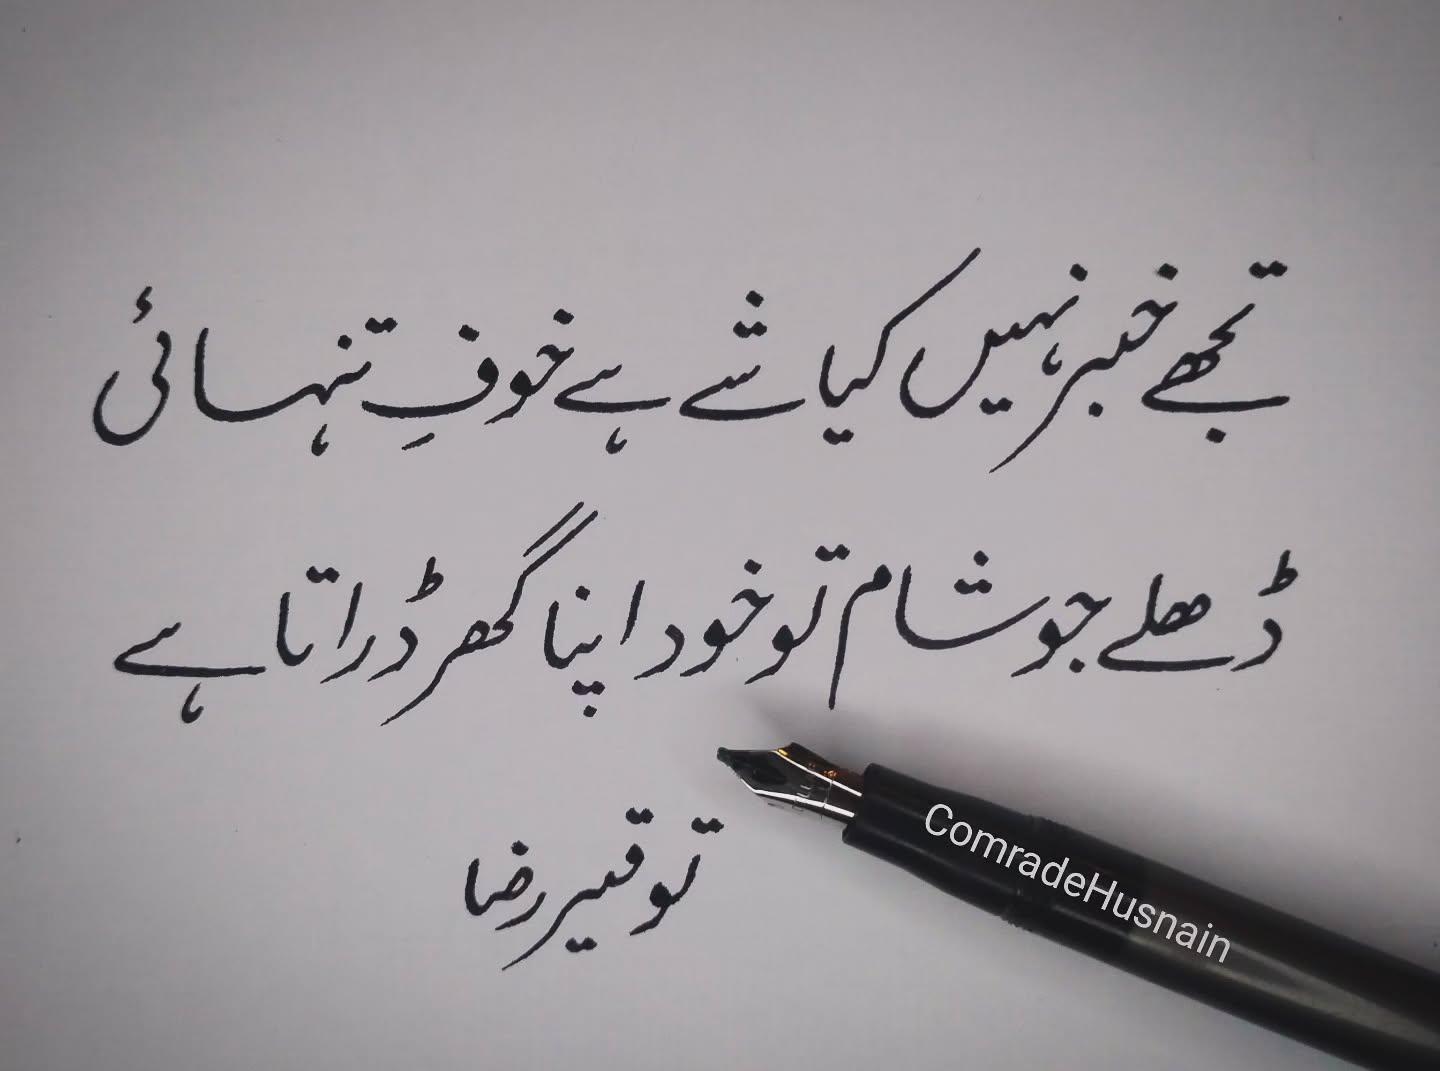 تجھے خبر نہیں کیا شے ہے خوفِ تنہائی
ڈھلے جو شام تو خود اپنا گھر ڈراتا ہے
توقیر رضا
ComradeHusnain